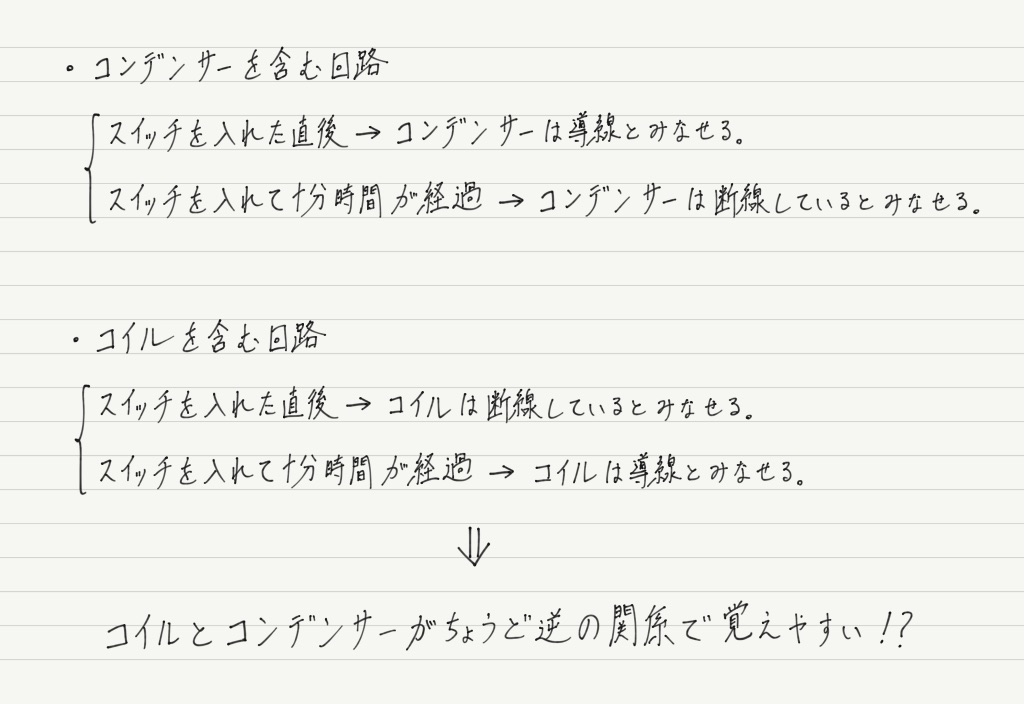 ・コンデンサーを含む回路
スイッチを入れた直後→コンデンサーは導線とみなせる。
スイッチを入れて十分時間が経過→コンデンサーは断線しているとみなせる。
・コイルを含む回路
スイッチを入れた直後→コイルは断線しているとみなせる。
スイッチを入れて十分時間が経過→コイルは導線とみなせる。
⇓
コイルとコンデンサーがちょうど逆の関係で覚えやすい!?